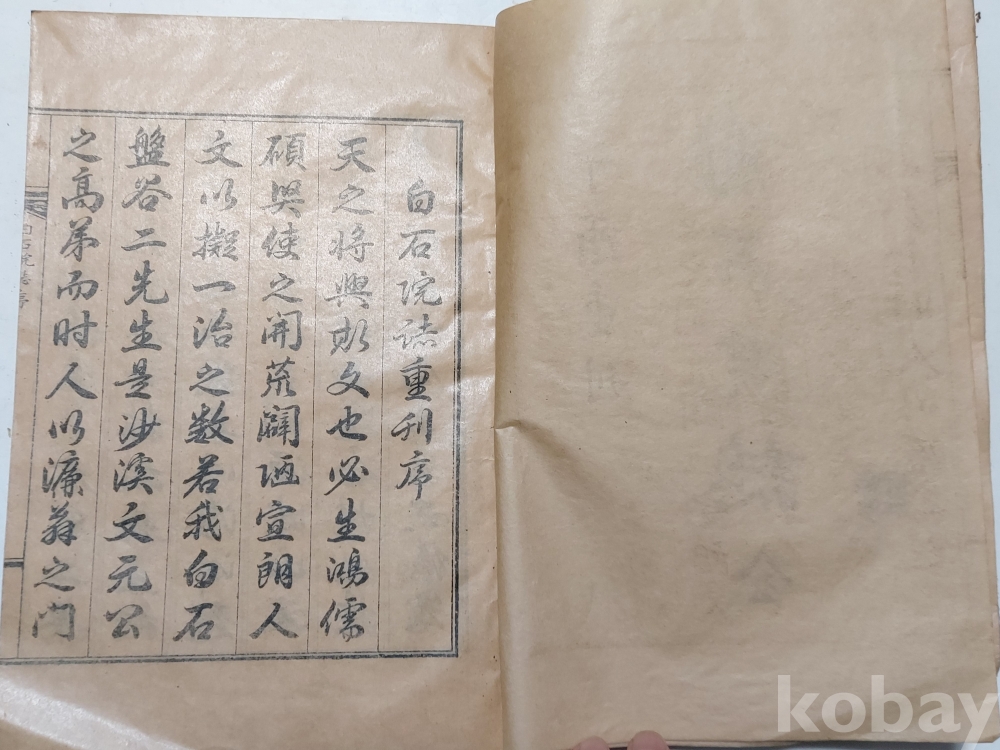 白石院誌重刊序
天之將興斯文也必生鴻儒
碩
使之開荒闢陋宣朗人
文以擬一治之数若我白石
盤谷二先生是沙溪文元公
之高弟而时人以濂
之门
白石院誌序
kobay